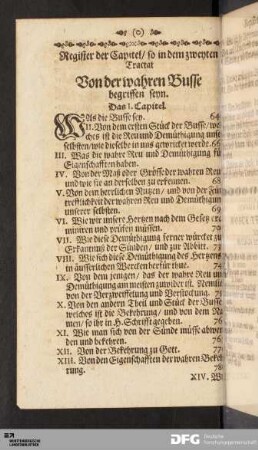 (o)
Register der Capitel/ so in dem zweyten
Tractat
Von der wahren Busse
begriffen seyn.
Das I. Capitel.
Was die Busse sey. 64
II. Von dem ersten Stück der Busse/
ches ist die Reu und Demüthigung
selbsten/ wie dieselbe in uns gewircket werde. 66
III. Was die wahre Reu und Demüthigung für
Eigenschafften haben.
IV. Von der Maß oder Grösse der wahren Reu
und wie sie an derselben zu erkennen. 68
V. Von dem herrlichen Nutzen/ und von der
trefflichkeit der wahren Reu und Demüthigung
unserer selbsten. 69
VI. Wie wir unsere Hertzen nach dem Gesetz
miniren und prüfen müssen. 70
VII. Wie diese Demüthigung ferner würcket zur
Erkäntnuß der Sünden/ und zur Abbitt.
VIII. Wie sich diese Demüthigung des Hertzens
in äusserlichen Wercken herfür thut. 74
IX. Von dem jenigen/ das der wahre Reu und
Demüthigung am meisten zuwider ist. Nemlich
von der Verzweiffelung und Verstockung.
X. Von den andern Theil und Stück der Busse
welches ist die Bekehrung/ und von dem
men/ so ihr in H. Schrifft gegeben. 76
XI. Wie man sich von der Sünde müsse
den und bekehren. 76
XII. Von der Bekehrung zu Gott. 77
XIII. Von den Eigenschafften der wahren
rung. 78
XIV.
DFG
Deutsche
Forschungsgemeinschaft